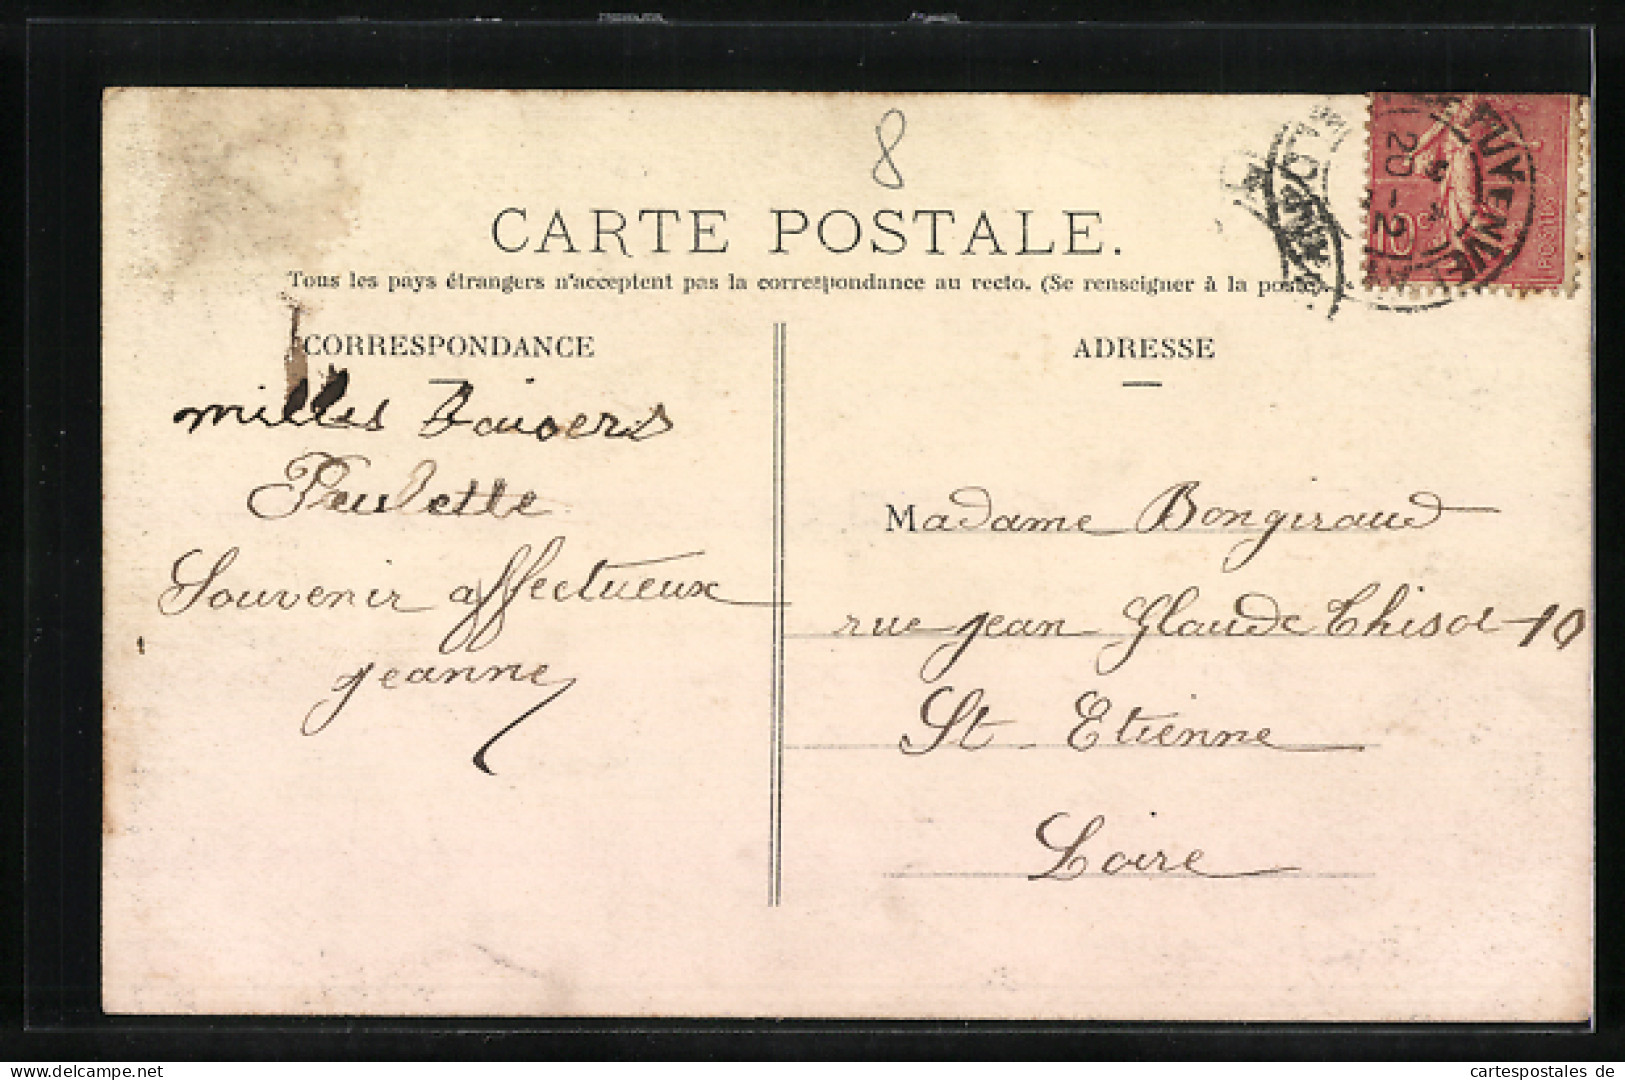 8
CARTE POSTALE.
Tous les pays étrangers n'acceptent pas la correspondance au recto. (Se renseigner à la poste).
CORRESPONDANCE
milles Baisers
Paulette
Souvenir affectueux
jeanne
ADRESSE
Madame Bongiraud
rue jean Glaude Thisot 10
St Etienne
Loire
10c
POSTES
20 -2
www.delcampe.net
cartespostales de